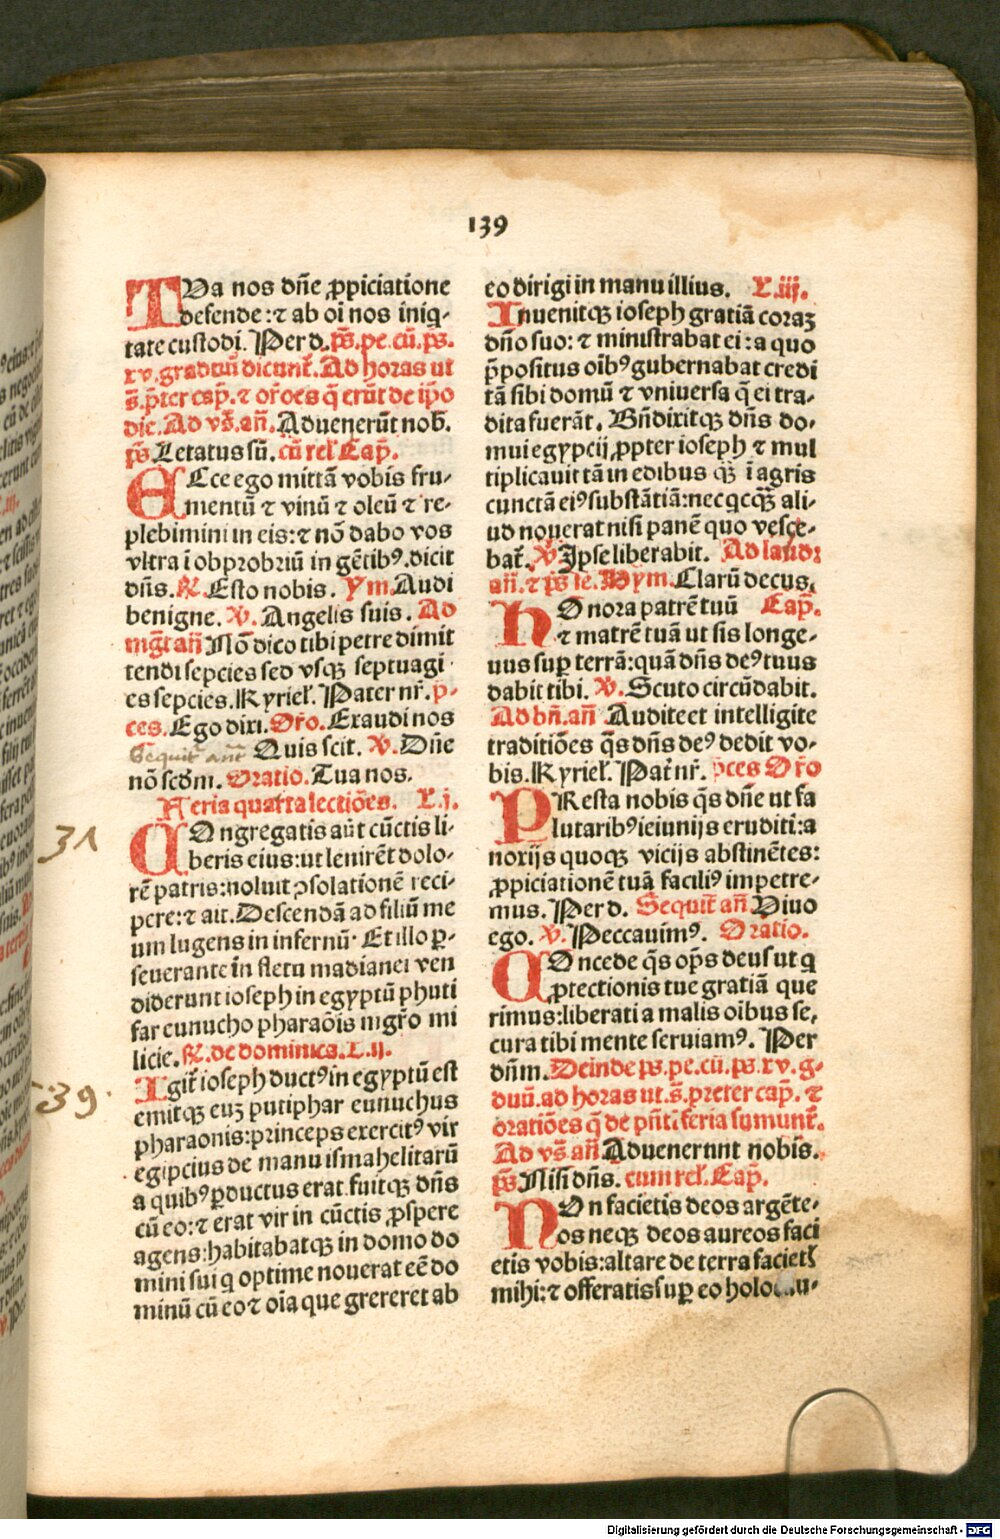 139
TUa nos dñe ꝓpiciatione
defende:⁊ ab oi nos iniq̄-
tate custodi. Per d. p̄s. pe. cū. p̄s.
xv. graduū dicunt̃. Ad horas ut
s̄. p̄ter cap̄. ⁊ or̄oes q̄ erūt de ip̄o
die. Ad vs̄. añ. Aduenerūt nob̄.
p̄s Letatus sū. cū rel̄ Cap̄.
ECce ego mittā vobis fru-
mentū ⁊ vinū ⁊ oleū ⁊ re-
plebimini in eis:⁊ nō dabo vos
vltra ī obprobriū in gētibꝰ. dicit
dñs. ℟. Esto nobis. Ym. Audi
benigne. ℣. Angelis suis. Ad
mg̃t añ Nō dico tibi petre dimit
tendi sepcies sed vsqꝫ septuagi
es sepcies. Kyriel̄. Pater nr̄. p̄-
ces. Ego dixi. Or̄o. Exaudi nos
Sequit̃ ant̄ Quis scit. ℣. Dñe
nō scd̄m. Oratio. Tua nos.
Feria quarta lectiões. L. j.
31
COngregatis aūt cūctis li-
beris eius: ut lenirēt dolo-
rē patris: noluit ꝯsolationē reci-
pere:⁊ ait. Descendā ad filiū me
um lugens in infernū. Et illo ꝑ-
seuerante in fletu madianei ven
diderunt ioseph in egyptū phuti
far eunucho pharaōis mgr̄o mi
licie. ℟. de dominica. L. ij.
39
Igit̃ ioseph ductꝰ in egyptū est
emitqꝫ euꝫ putiphar eunuchus
pharaonis: princeps exercitꝰ vir
egipcius de manu ismahelitarū
a quibꝰ ꝑductus erat. fuitqꝫ dñs
cū eo:⁊ erat vir in cūctis ꝓspere
agens: habitabatqꝫ in domo do
mini sui q optime nouerat eē do
minū cū eo ⁊ oīa que grereret ab
eo dirigi in manu illius. L. iij.
Inuenitqꝫ ioseph gratiā coraꝫ
dño suo:⁊ ministrabat ei: a quo
p̄positus oībꝰ gubernabat credi
tā sibi domū ⁊ vniuersa q̄ ei tra-
dita fuerāt. Bn̄dixitqꝫ dñs do-
mui egypcij ꝓpter ioseph ⁊ mul
tiplicauit tā in edibus qꝫ ī agris
cunctā eiꝰ substātiā: nec qcqꝫ ali-
ud nouerat nisi panē quo vesce-
bat̃. ℣ Ipse liberabit. Ad laud:
añ. ⁊ p̄s fe. Hym. Clarū decus.
HOnora patrē tuū Cap̄.
⁊ matrē tuā ut sis longe-
uus suꝑ terrā: quā dñs deꝰ tuus
dabit tibi. ℣. Scuto circūdabit.
Ad bn̄. añ Audite et intelligite
traditiōes q̄s dñs deꝰ dedit vo-
bis. Kyriel̄. Pat̃ nr̄. p̄ces Or̄o
PResta nobis q̄s dñe ut sa
lutaribꝰ ieiunijs eruditi: a
noxijs quoqꝫ vicijs abstinētes:
ꝓpiciationē tuā faciliꝰ impetre-
mus. Per d. Sequit̃ añ Viuo
ego. ℣. Peccauimꝰ. Oratio.
COncede q̄s op̄s deus ut q
ꝓtectionis tue gratiā que
rimus: liberati a malis oībus se,
cura tibi mente seruiamꝰ. Per
dn̄m. Deinde p̄s. pe. cū. p̄s. xv. g-
duū. ad horas ut. s̄. preter cap̄. ⁊
oratiōes q̄ de pn̄ti feria sumunt̃.
Ad vs̄ añ Aduenernnt nobis.
p̄s Nisi dñs. cum rel̄. Cap̄.
NOn facietis deos argēte-
os neqꝫ deos aureos faci
etis vobis: altare de terra faciet̃
mihi:⁊ offeratis suꝑ eo holocau-
Digitalisierung gefördert durch die Deutsche Forschungsgemeinschaft - DFG